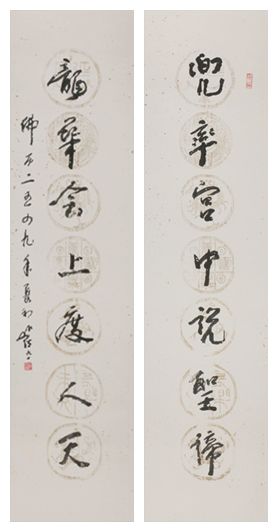 兜率宫中説聖諦
龍華會上度人天
佛曆二五四九年夏初